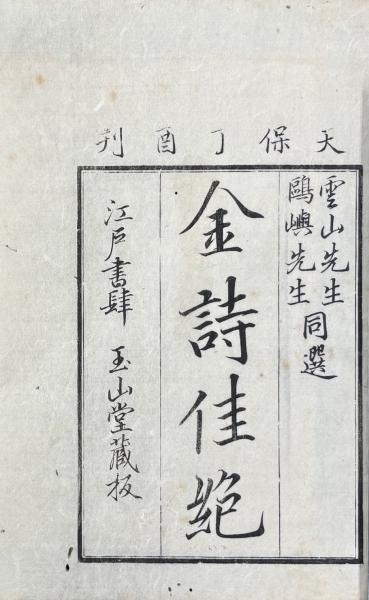 天保丁酉刋
雲山先生
鷗嶼先生
同選
金詩佳絶
江戸書肆 玉山堂藏板